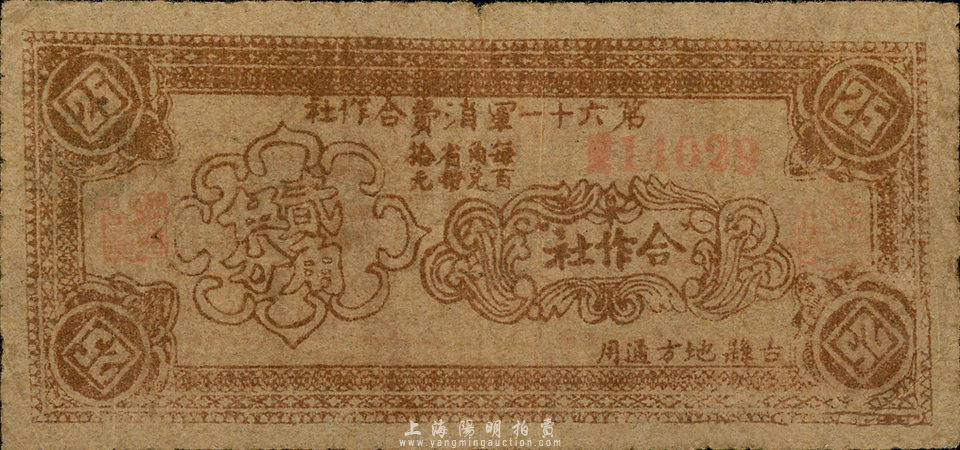 25
25
第六十一軍消費合作社
每百
兩兌
省鈔
拾元
11029
貳角
伍分
合作社
吉縣地方通用
25
25
上海陽明拍賣
www.yangmingauction.com